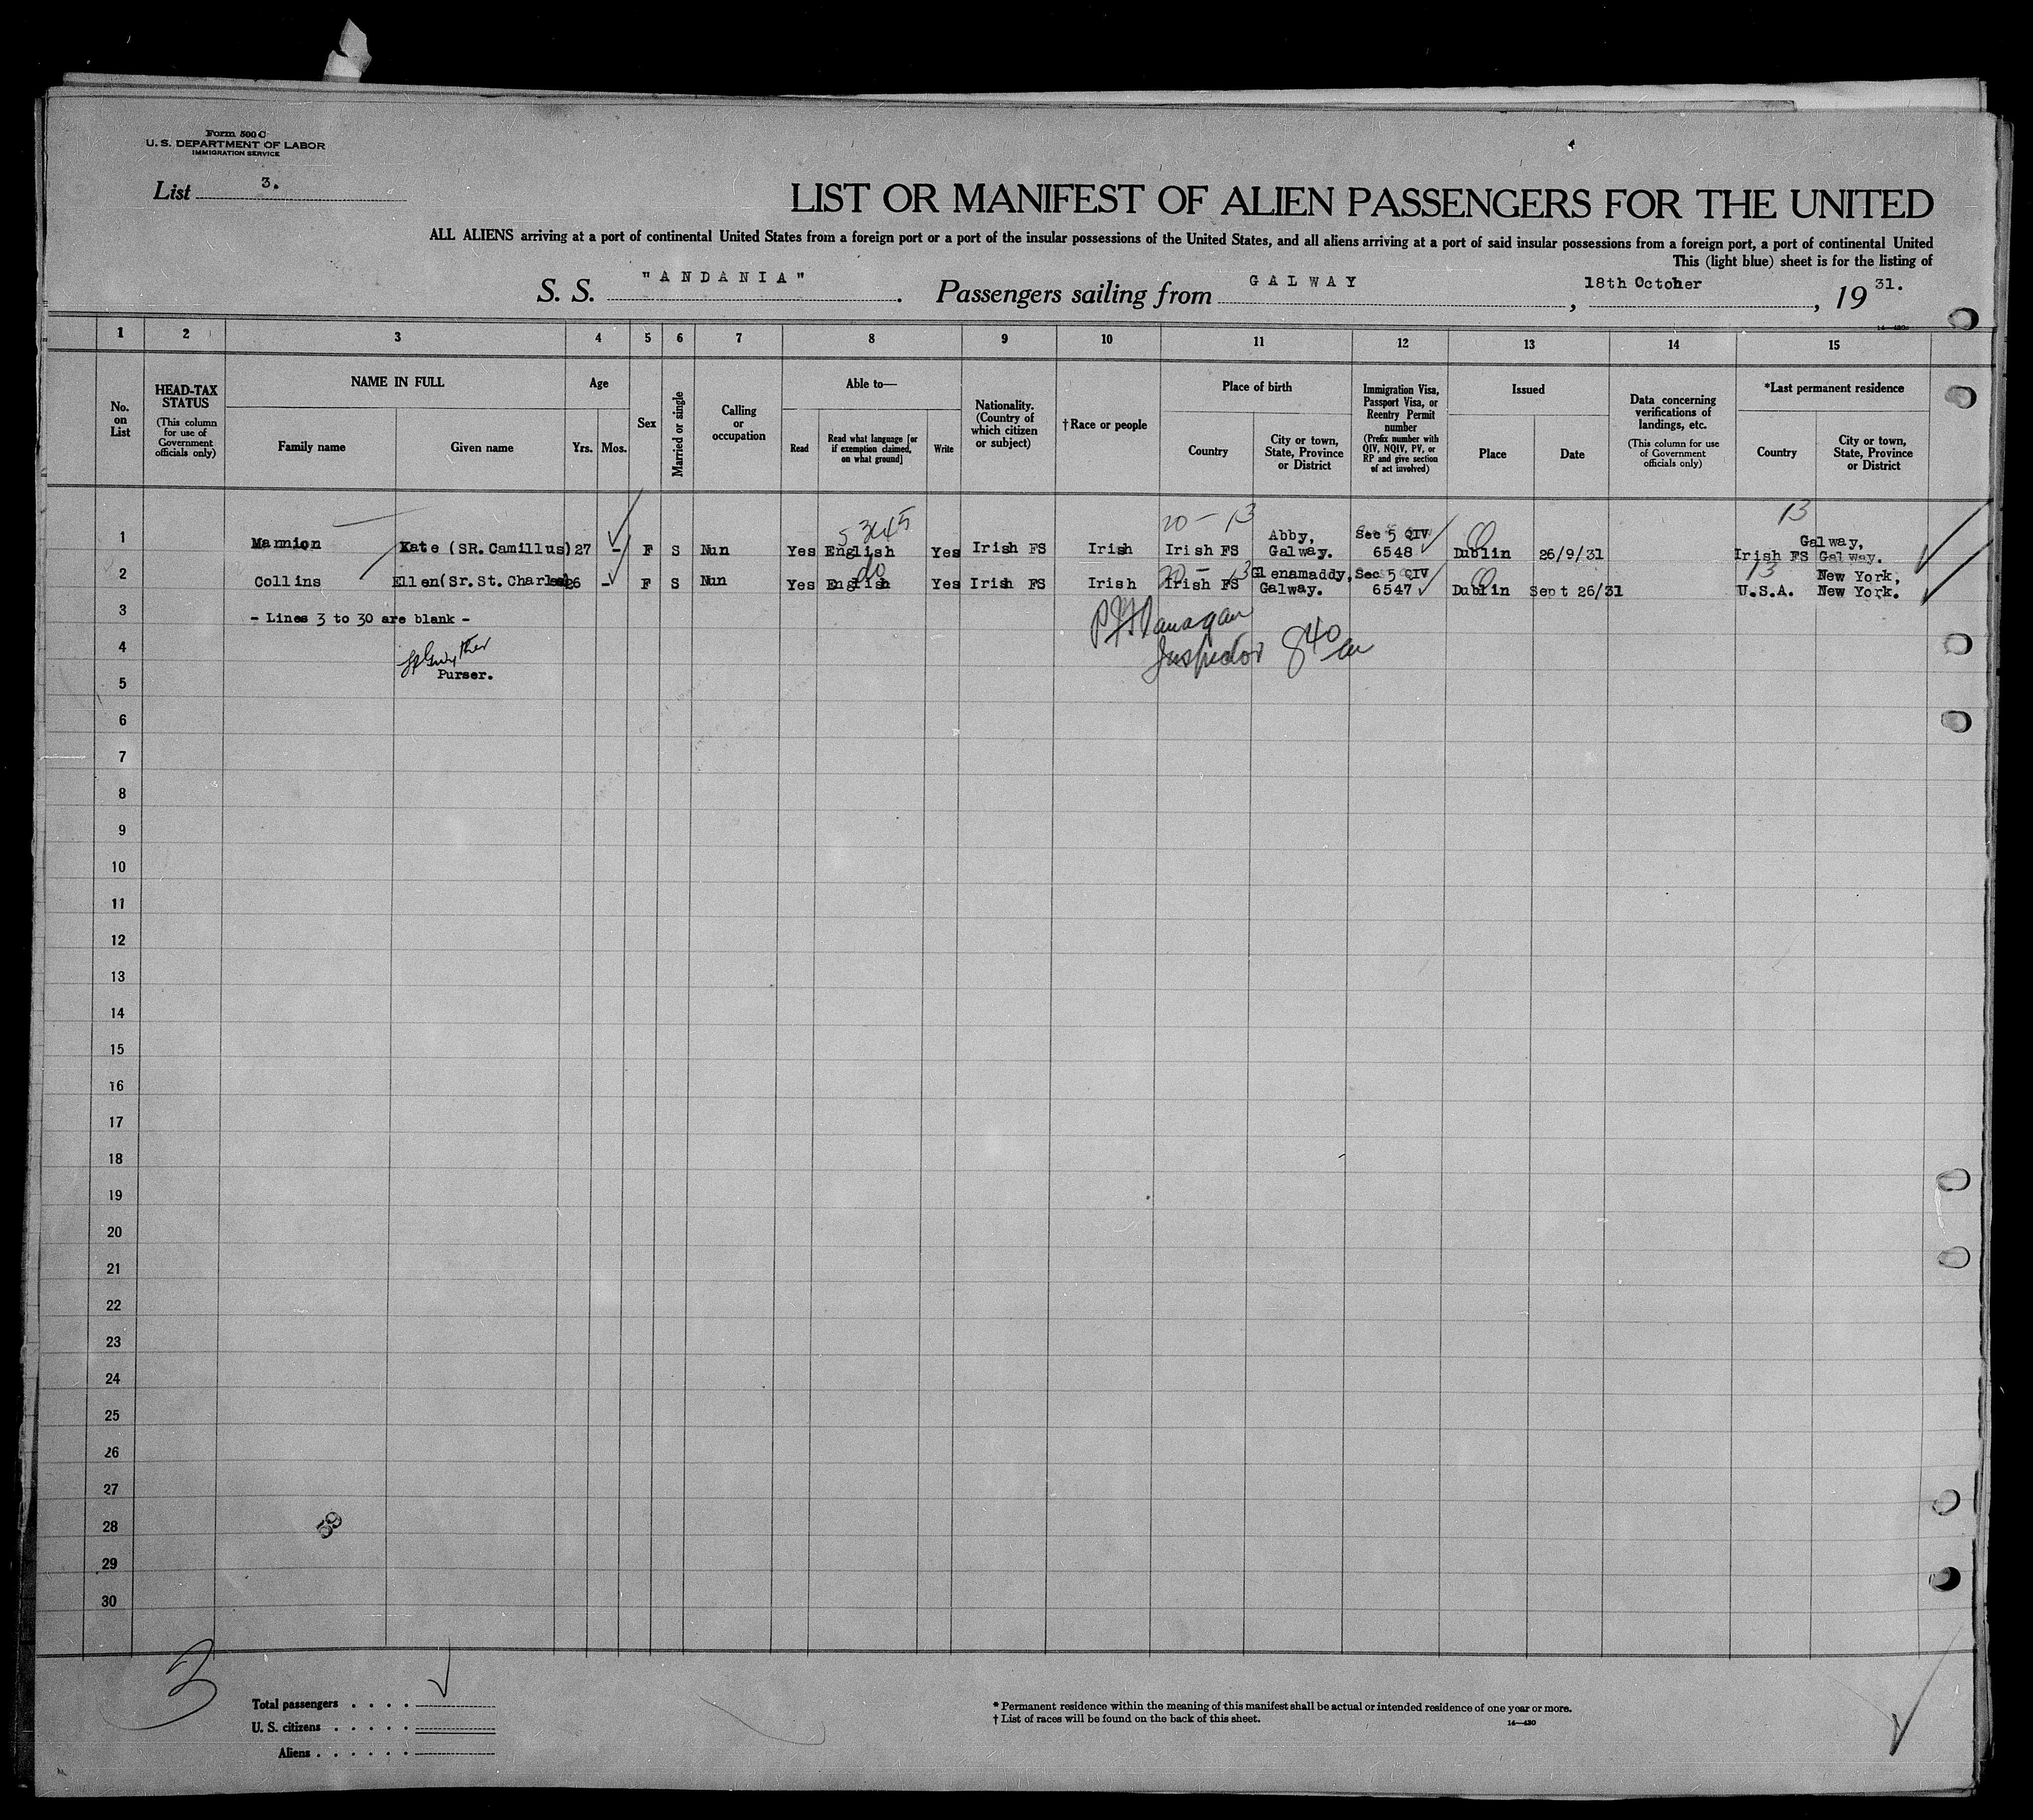 Form 500 C
U. S. DEPARTMENT OF LABOR
IMMIGRATION SERVICE
List 3.
LIST OR MANIFEST OF ALIEN PASSENGERS FOR THE UNITED
ALL ALIENS arriving at a port of continental United States from a foreign port or a port of the insular possessions of the United States, and all aliens arriving at a port of said insular possessions from a foreign port, a port of continental United
This (light blue) sheet is for the listing of
S. S. "ANDANIA". Passengers sailing from GALWAY, 18th October, 19 31.
1 2 3 4 5 6 7 8 9 10 11 12 13 14 15
No. on List
HEAD-TAX STATUS
(This column for use of Government officials only)
NAME IN FULL
Family name
Given name
Age
Yrs.
Mos.
Sex
Married or single
Calling or occupation
Able to—
Read
Read what language [or if exemption claimed, on what ground]
Write
Nationality. (Country of which citizen or subject)
† Race or people
Place of birth
Country
City or town, State, Province or District
Immigration Visa, Passport Visa, or Reentry Permit number
(Prefix number with QIV, NQIV, PV, or RP and give section of act involved)
Issued
Place
Date
Data concerning verifications of landings, etc.
(This column for use of Government officials only)
*Last permanent residence
Country
City or town, State, Province or District
20 - 13
13
5 3645
1 Mannion Kate (SR. Camillus) 27 - F S Nun Yes English Yes Irish FS Irish Irish FS Abby, Galway. Sec 5 QIV 6548 Dublin 26/9/31 Irish FS Galway, Galway.
do
20 - 13
13
2 Collins Ellen(Sr.St.Charles) 26 - F S Nun Yes English Yes Irish FS Irish Irish FS Glenamaddy, Galway. Sec 5 QIV 6547 Dublin Sept 26/31 U.S.A. New York, New York.
3 - Lines 3 to 30 are blank -
P Flanagan
Inspector 8 40 am
4
Purser.
5
6
7
8
9
10
11
12
13
14
15
16
17
18
19
20
21
22
23
24
25
26
27
28
29
30
59
3
Total passengers . . . .
U. S. citizens . . . . .
Aliens . . . . . .
* Permanent residence within the meaning of this manifest shall be actual or intended residence of one year or more.
† List of races will be found on the back of this sheet.
14—430